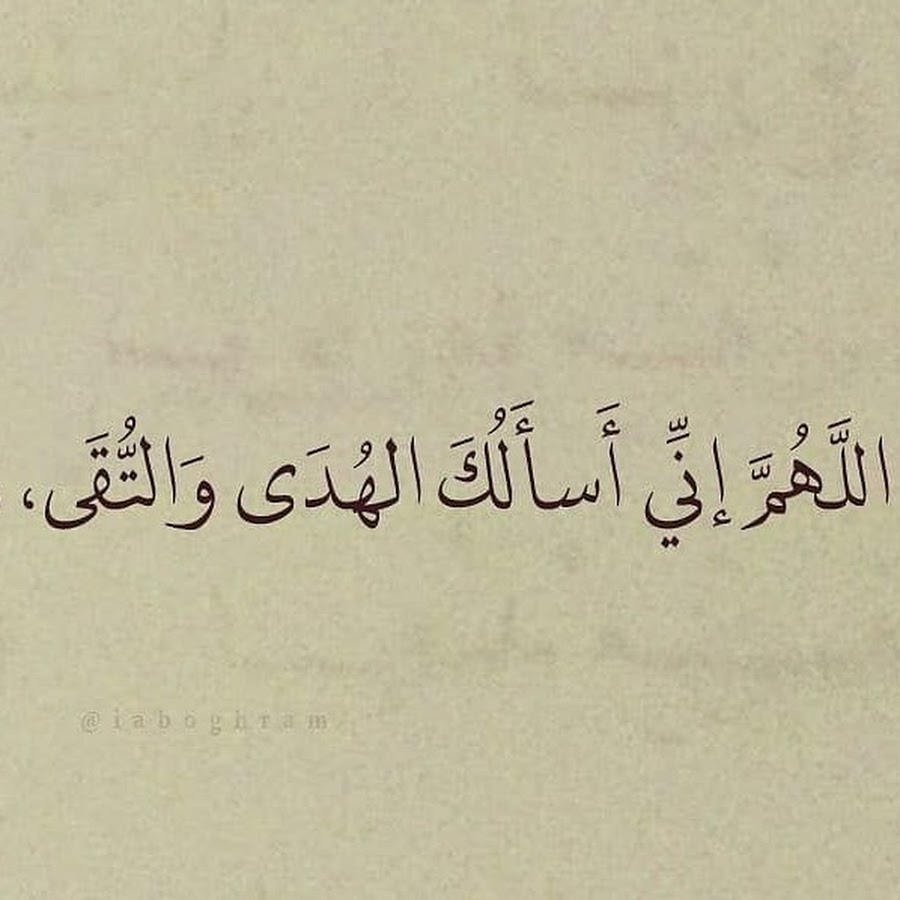 اللَّهُمَّ إِنِّي أَسأَلُكَ الهُدَى وَالتُّقَى،
@iaboghram